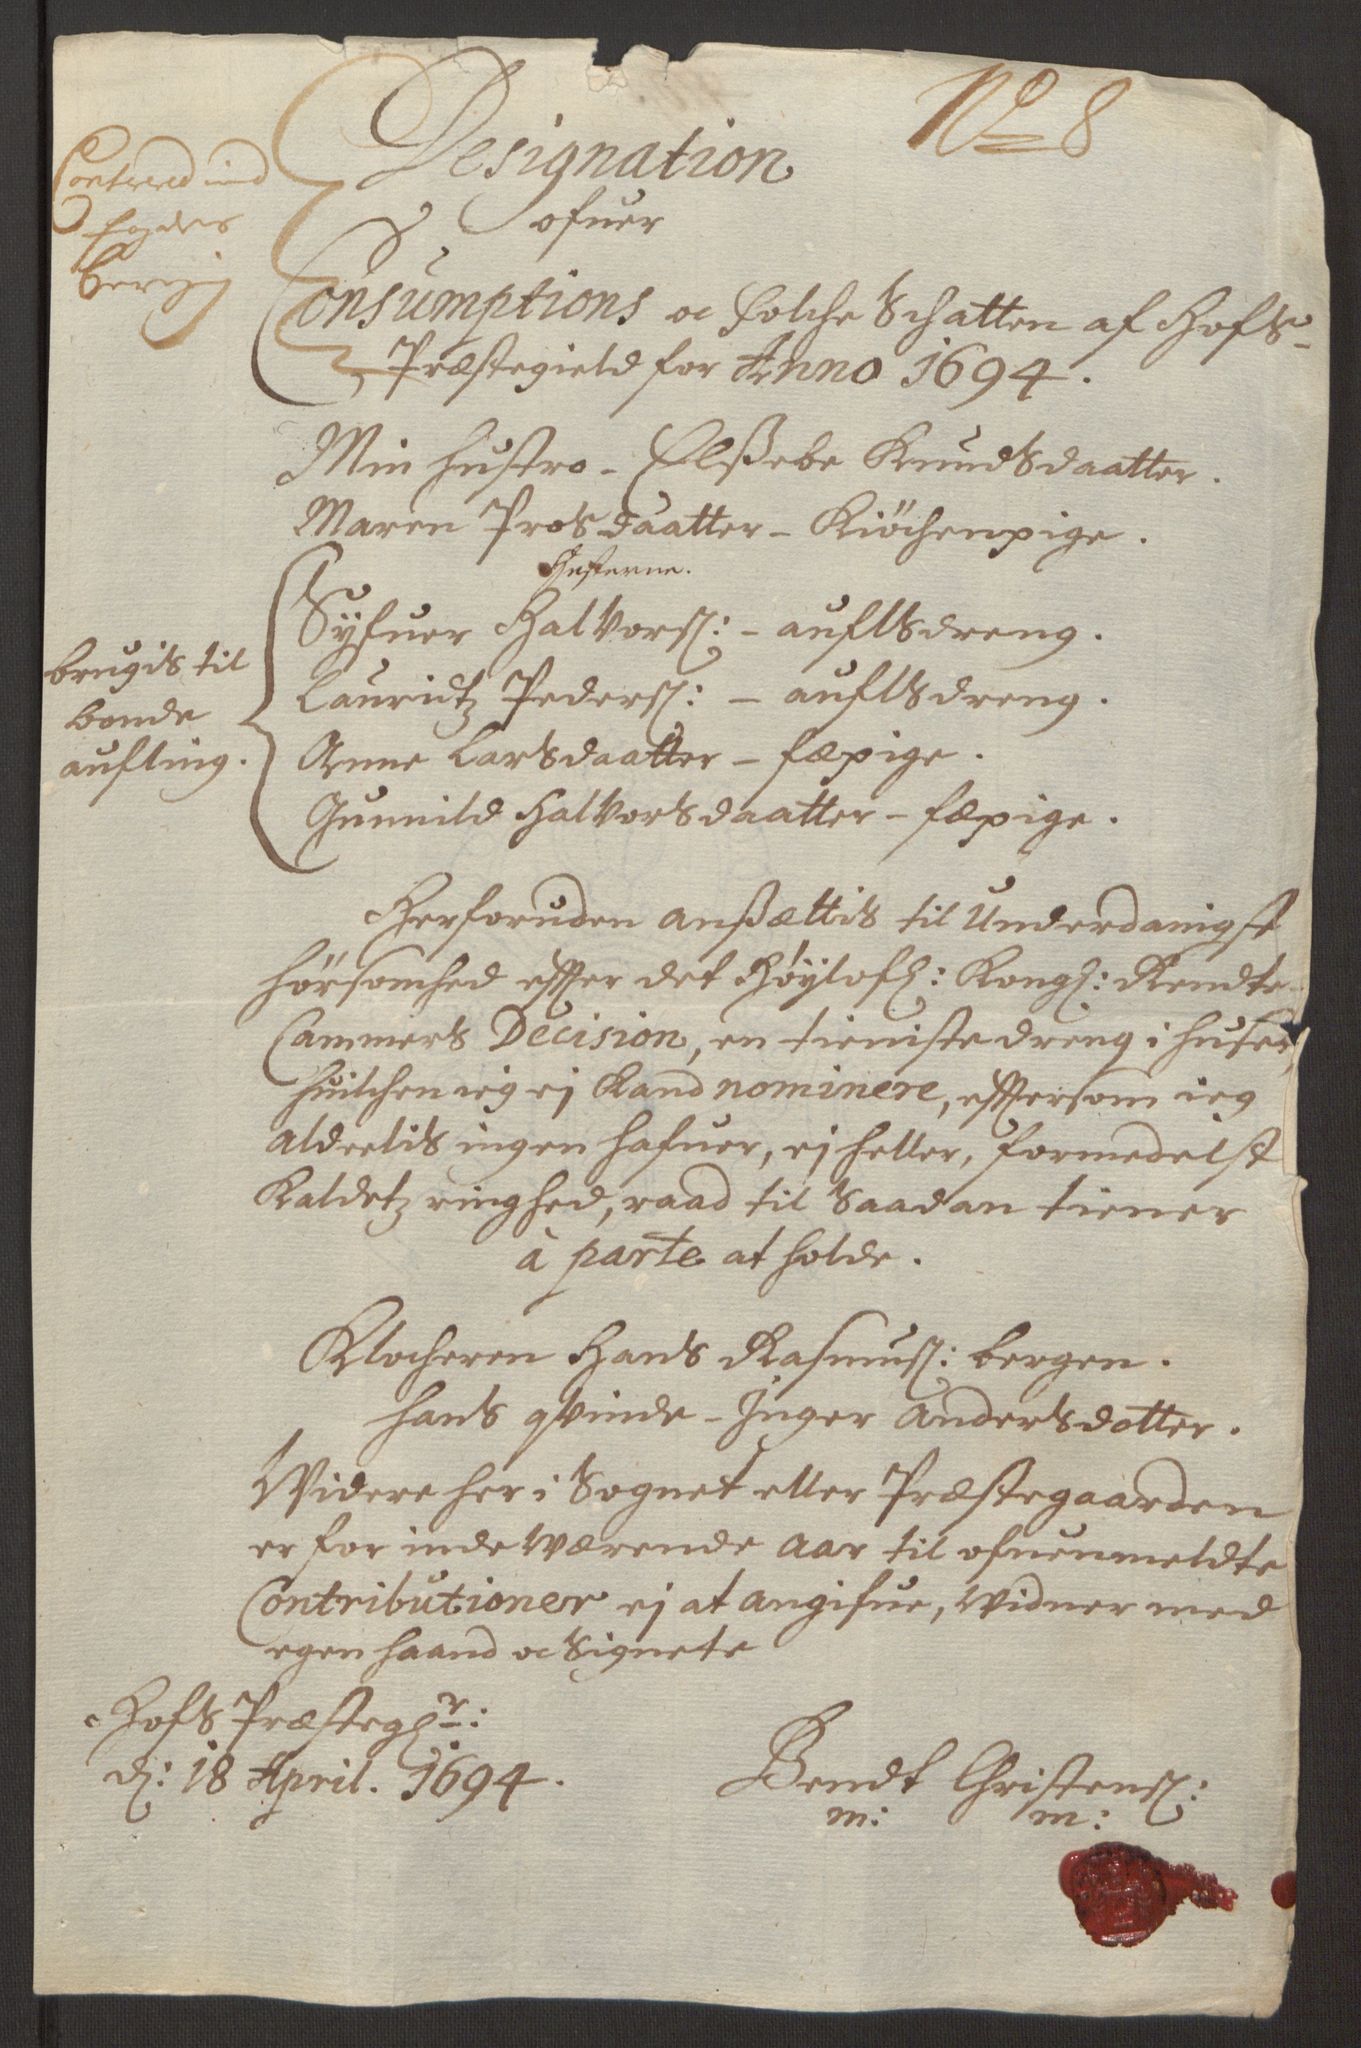 No 8
Designation
ofuer
Consumptions oc Folche Schatten af Hofs-
Præstegield for Anno 1694.
Min hustro - Elßebe Knudsdaatter.
Maren Prosdaatter - Kiöchenpige.
Hesterne.
Syfuer Halvors: - auflsdreng.
Lauridtz Peders: - auflsdreng.
Anne Larsdaatter - fæpige.
Gunnild Halvorsdaatter - fæpige.
brugis til
bonde
aufling.
Herforuden ansættis til Underdanigst
hörsomhed effter det Höylofl: Kongl: Rendte-
Cammers Decision, en tieniste dreng i huset,
huilchen ieg ej kand nominere, efftersom ieg
aldeelis ingen hafuer, ej heller, formedelst
Kaldetz ringhed, raad til saadan tiener
à parte at holde.
Klocheren Hans Rasmus: bergen.
hans qvinde - Inger Andersdotter.
Widere her i Sognet eller Præstegaarden
er for indeværende aar til ofuenmeldte
Contributioner ej at angifue, Widner med
egen haand oc Signete
Hofs Præstegr:
d: 18 April. 1694.
Bendt Christens:
m: m: